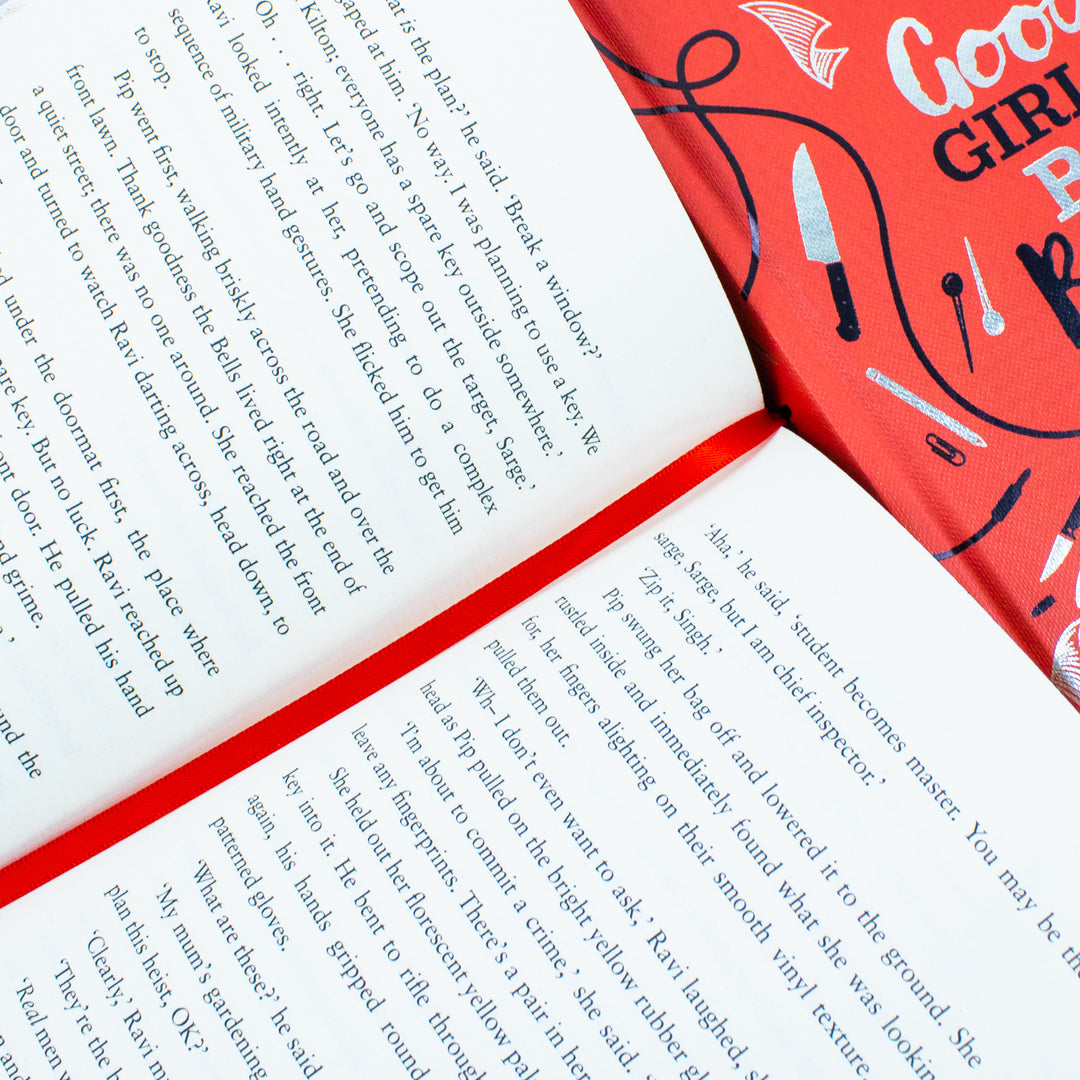 at is the plan?’ he said. ‘Break a window?’
aped at him. ‘No way. I was planning to use a key. We
Kilton; everyone has a spare key outside somewhere.’
Oh . . . right. Let’s go and scope out the target, Sarge.’
avi looked intently at her, pretending to do a complex
sequence of military hand gestures. She flicked him to get him
to stop.
Pip went first, walking briskly across the road and over the
front lawn. Thank goodness the Bells lived right at the end of
a quiet street; there was no one around. She reached the front
door and turned to watch Ravi darting across, head down, to
under the doormat first, the place where
are key. But no luck. Ravi reached up
ont door. He pulled his hand
nd grime.
und the
‘Aha,’ he said, ‘student becomes master. You may be th
sarge, Sarge, but I am chief inspector.’
‘Zip it, Singh.’
Pip swung her bag off and lowered it to the ground. She
rustled inside and immediately found what she was lookin
for, her fingers alighting on their smooth vinyl texture.
pulled them out.
‘Wh– I don’t even want to ask,’ Ravi laughed, s
head as Pip pulled on the bright yellow rubber gl
‘I’m about to commit a crime,’ she said. ‘
leave any fingerprints. There’s a pair in her
She held out her florescent yellow pal
key into it. He bent to rifle through
again, his hands gripped roun
patterned gloves.
‘What are these?’ he said
‘My mum’s gardening
plan this heist, OK?’
‘Clearly,’ Ravi mi
‘They’re the b
‘Real men w
Good
GIRL
B